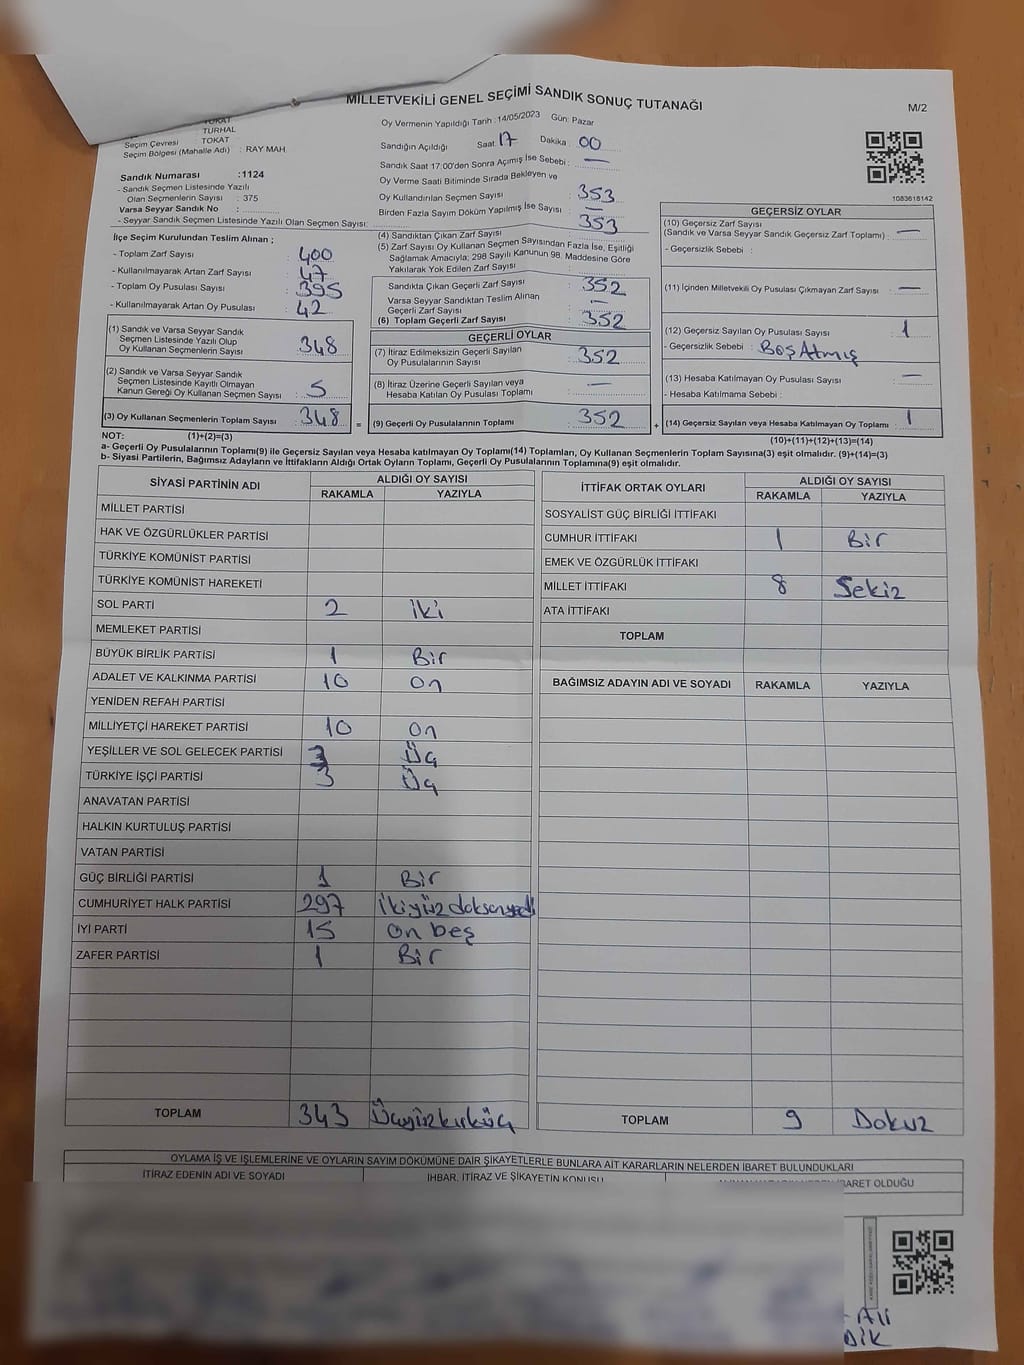 MİLLETVEKİLİ GENEL SEÇİMİ SANDIK SONUÇ TUTANAĞI
M/2
TOKAT
: TURHAL
Seçim Çevresi : TOKAT
Seçim Bölgesi (Mahalle Adı) : RAY MAH.
Oy Vermenin Yapıldığı Tarih :14/05/2023 Gün: Pazar
Sandığın Açıldığı Saat 17 Dakika 00
Sandık Saat 17:00'den Sonra Açımış İse Sebebi : —
Oy Verme Saati Bitiminde Sırada Bekleyen ve
Oy Kullandırılan Seçmen Sayısı : 353
Birden Fazla Sayım Döküm Yapılmış İse Sayısı : —
Sandık Numarası :1124
- Sandık Seçmen Listesinde Yazılı
Olan Seçmenlerin Sayısı : 375
Varsa Seyyar Sandık No :
- Seyyar Sandık Seçmen Listesinde Yazılı Olan Seçmen Sayısı:
1083618142
İlçe Seçim Kurulundan Teslim Alınan ;
- Toplam Zarf Sayısı : 400
- Kullanılmayarak Artan Zarf Sayısı : 47
- Toplam Oy Pusulası Sayısı : 395
- Kullanılmayarak Artan Oy Pusulası : 42
(1) Sandık ve Varsa Seyyar Sandık
Seçmen Listesinde Yazılı Olup
Oy Kullanan Seçmenlerin Sayısı : 348
(2) Sandık ve Varsa Seyyar Sandık
Seçmen Listesinde Kayıtlı Olmayan
Kanun Gereği Oy Kullanan Seçmen Sayısı : 5
(3) Oy Kullanan Seçmenlerin Toplam Sayısı : 348 =
(4) Sandıktan Çıkan Zarf Sayısı : 353
(5) Zarf Sayısı Oy Kullanan Seçmen Sayısından Fazla İse, Eşitliği
Sağlamak Amacıyla; 298 Sayılı Kanunun 98. Maddesine Göre
Yakılarak Yok Edilen Zarf Sayısı :
Sandıkta Çıkan Geçerli Zarf Sayısı : 352
Varsa Seyyar Sandıktan Teslim Alınan
Geçerli Zarf Sayısı : —
(6) Toplam Geçerli Zarf Sayısı : 352
GEÇERLİ OYLAR
(7) İtiraz Edilmeksizin Geçerli Sayılan
Oy Pusulalarının Sayısı : 352
(8) İtiraz Üzerine Geçerli Sayılan veya
Hesaba Katılan Oy Pusulası Toplamı : —
(9) Geçerli Oy Pusulalarının Toplamı : 352 +
GEÇERSİZ OYLAR
(10) Geçersiz Zarf Sayısı
(Sandık ve Varsa Seyyar Sandık Geçersiz Zarf Toplamı) : —
- Geçersizlik Sebebi :
(11) İçinden Milletvekili Oy Pusulası Çıkmayan Zarf Sayısı : —
(12) Geçersiz Sayılan Oy Pusulası Sayısı : 1
- Geçersizlik Sebebi : Boş Atmış
(13) Hesaba Katılmayan Oy Pusulası Sayısı : —
- Hesaba Katılmama Sebebi :
(14) Geçersiz Sayılan veya Hesaba Katılmayan Oy Toplamı : 1
NOT: (1)+(2)=(3)
(10)+(11)+(12)+(13)=(14)
a- Geçerli Oy Pusulalarının Toplamı(9) ile Geçersiz Sayılan veya Hesaba katılmayan Oy Toplamı(14) Toplamları, Oy Kullanan Seçmenlerin Toplam Sayısına(3) eşit olmalıdır. (9)+(14)=(3)
b- Siyasi Partilerin, Bağımsız Adayların ve İttifakların Aldığı Ortak Oyların Toplamı, Geçerli Oy Pusulalarının Toplamına(9) eşit olmalıdır.
SİYASİ PARTİNİN ADI ALDIĞI OY SAYISI
RAKAMLA YAZIYLA
MİLLET PARTİSİ
HAK VE ÖZGÜRLÜKLER PARTİSİ
TÜRKİYE KOMÜNİST PARTİSİ
TÜRKİYE KOMÜNİST HAREKETİ
SOL PARTİ 2 iki
MEMLEKET PARTİSİ
BÜYÜK BİRLİK PARTİSİ 1 Bir
ADALET VE KALKINMA PARTİSİ 10 on
YENİDEN REFAH PARTİSİ
MİLLİYETÇİ HAREKET PARTİSİ 10 on
YEŞİLLER VE SOL GELECEK PARTİSİ 3 Üç
TÜRKİYE İŞÇİ PARTİSİ 3 Üç
ANAVATAN PARTİSİ
HALKIN KURTULUŞ PARTİSİ
VATAN PARTİSİ
GÜÇ BİRLİĞİ PARTİSİ 1 Bir
CUMHURİYET HALK PARTİSİ 297 ikiyüzdoksanyedi
İYİ PARTİ 15 on beş
ZAFER PARTİSİ 1 Bir
TOPLAM 343 Üçyüzkırküç
İTTİFAK ORTAK OYLARI ALDIĞI OY SAYISI
RAKAMLA YAZIYLA
SOSYALİST GÜÇ BİRLİĞİ İTTİFAKI
CUMHUR İTTİFAKI 1 Bir
EMEK VE ÖZGÜRLÜK İTTİFAKI
MİLLET İTTİFAKI 8 Sekiz
ATA İTTİFAKI
TOPLAM
BAĞIMSIZ ADAYIN ADI VE SOYADI RAKAMLA YAZIYLA
TOPLAM 9 Dokuz
OYLAMA İŞ VE İŞLEMLERİNE VE OYLARIN SAYIM DÖKÜMÜNE DAİR ŞİKAYETLERLE BUNLARA AİT KARARLARIN NELERDEN İBARET BULUNDUKLARI
İTİRAZ EDENİN ADI VE SOYADI İHBAR, İTİRAZ VE ŞİKAYETİN KONUSU İBARET OLDUĞU
Ali
DİK